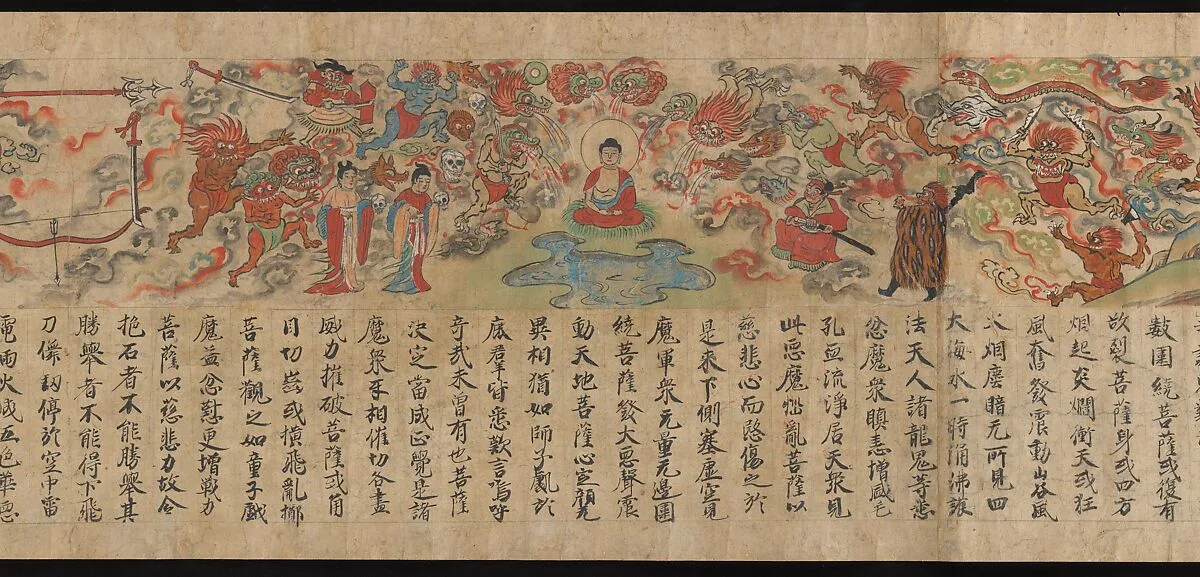 數圍繞菩薩或復有
欲裂菩薩身或四方
烟起炎爛衝天或狂
風奮發震動山谷風
火烟塵暗无所見四
大海水一時涌沸護
法天人諸龍鬼等悉
忿魔衆瞋恚增盛毛
孔血流淨居天衆見
此惡魔惱亂菩薩以
慈悲心而愍傷之於
是來下側塞虛空見
魔軍衆无量无邊圍
繞菩薩發大惡聲震
動天地菩薩心定顏无
異相猶如師子處於
鹿羣皆悉歎言嗚呼
奇哉未曾有也菩薩
決定當成正覺是諸
魔衆互相催切各盡
威力摧破菩薩或角
目切齒或横飛亂擲
菩薩觀之如童子戲
魔益忿懟更增戰力
菩薩以慈悲力故令
抱石者不能勝舉其
勝舉者不能得下飛
刀儛釼停於空中雷
電雨火成五色華惡